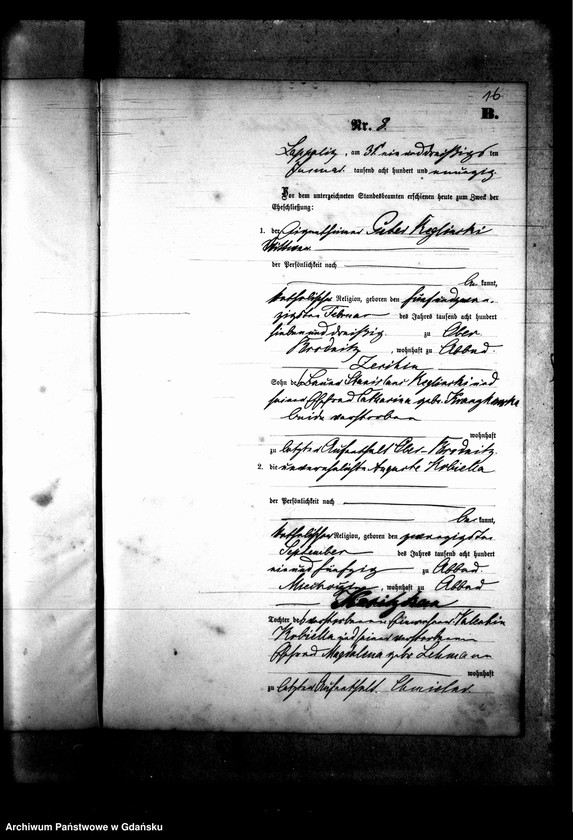 16
B.
Nr. 8.
Lappalitz, am 31. ein und dreißigsten
Januar tausend acht hundert und neunzig
Vor dem unterzeichneten Standesbeamten erschienen heute zum Zweck der
Eheschließung:
1. der Eigenthümer Keglinski
Wittwer
der Persönlichkeit nach
be kannt,
katholischer Religion, geboren den fünfundzwan-
zigsten Februar des Jahres tausend acht hundert
siebenunddreißig zu Ober
Brodnitz, wohnhaft zu Abbau
Sohn des Bauer Stanislaus Keglinski und
seiner Ehefrau Catharina geb.
beide verstorben
wohnhaft
zu letzter Aufenthalt Ober-Brodnitz
2. die unverehelichte Auguste Kobiella
der Persönlichkeit nach
be kannt,
katholischer Religion, geboren den zwanzigsten
September des Jahres tausend acht hundert
einundfünfzig zu Abbau
wohnhaft zu Abbau
Tochter des verstorbenen Einwohner Valentin
Kobiella und seiner verstorbenen
Ehefrau Magdalena geb. Lehmann
wohnhaft
zu letzter Aufenthalt Chmielno
Archiwum Państwowe w Gdańsku